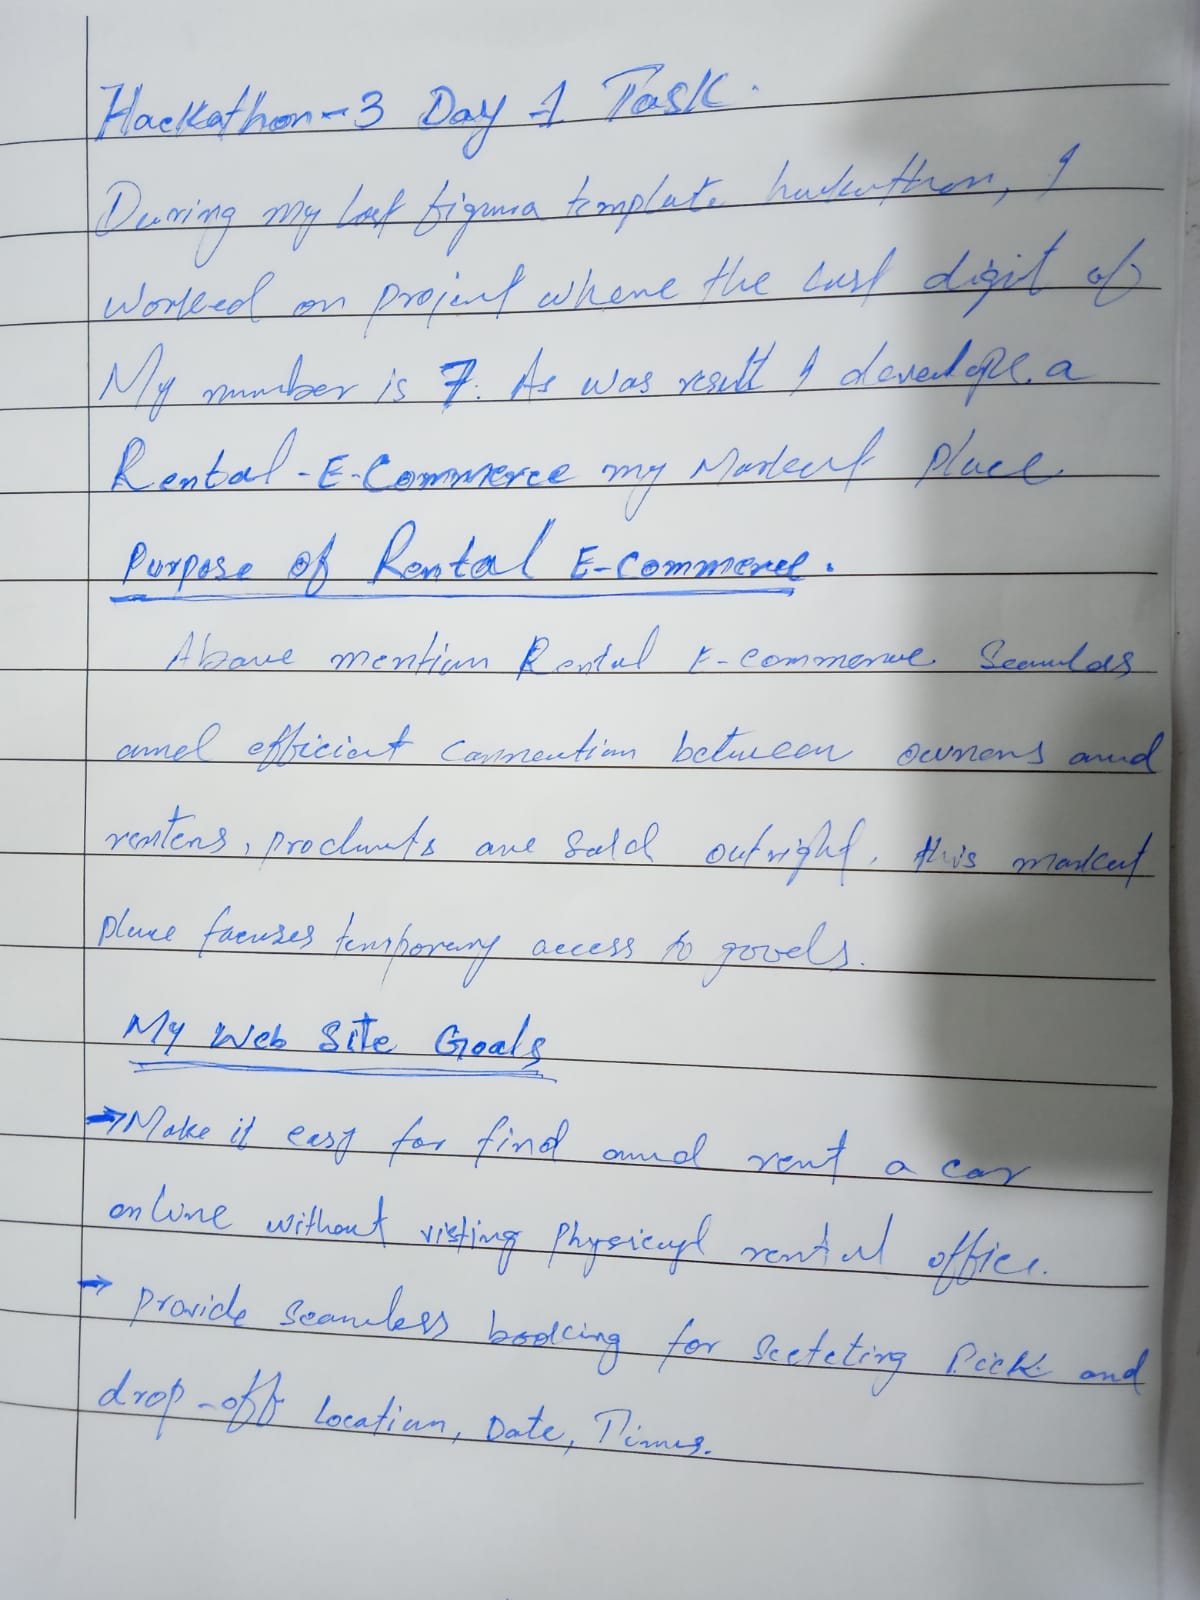 Hackathon-3 Day-1 Task.
During my last figma template hackathon, I
worked on project where the last digit of
My number is 7. As was result I develope a
Rental-E-Commerce my Market place
Purpose of Rental E-Commerce.
Above mention Rental E-commerce Seamless
and efficient connection between owners and
renters, products are sold outright, this market
place focuses temporary access to goods.
My Web Site Goals
→ Make it easy for find and rent a car
online without visting physical rental office.
→ provide seamless booking for Pick and
drop-off Location, Date, Times.